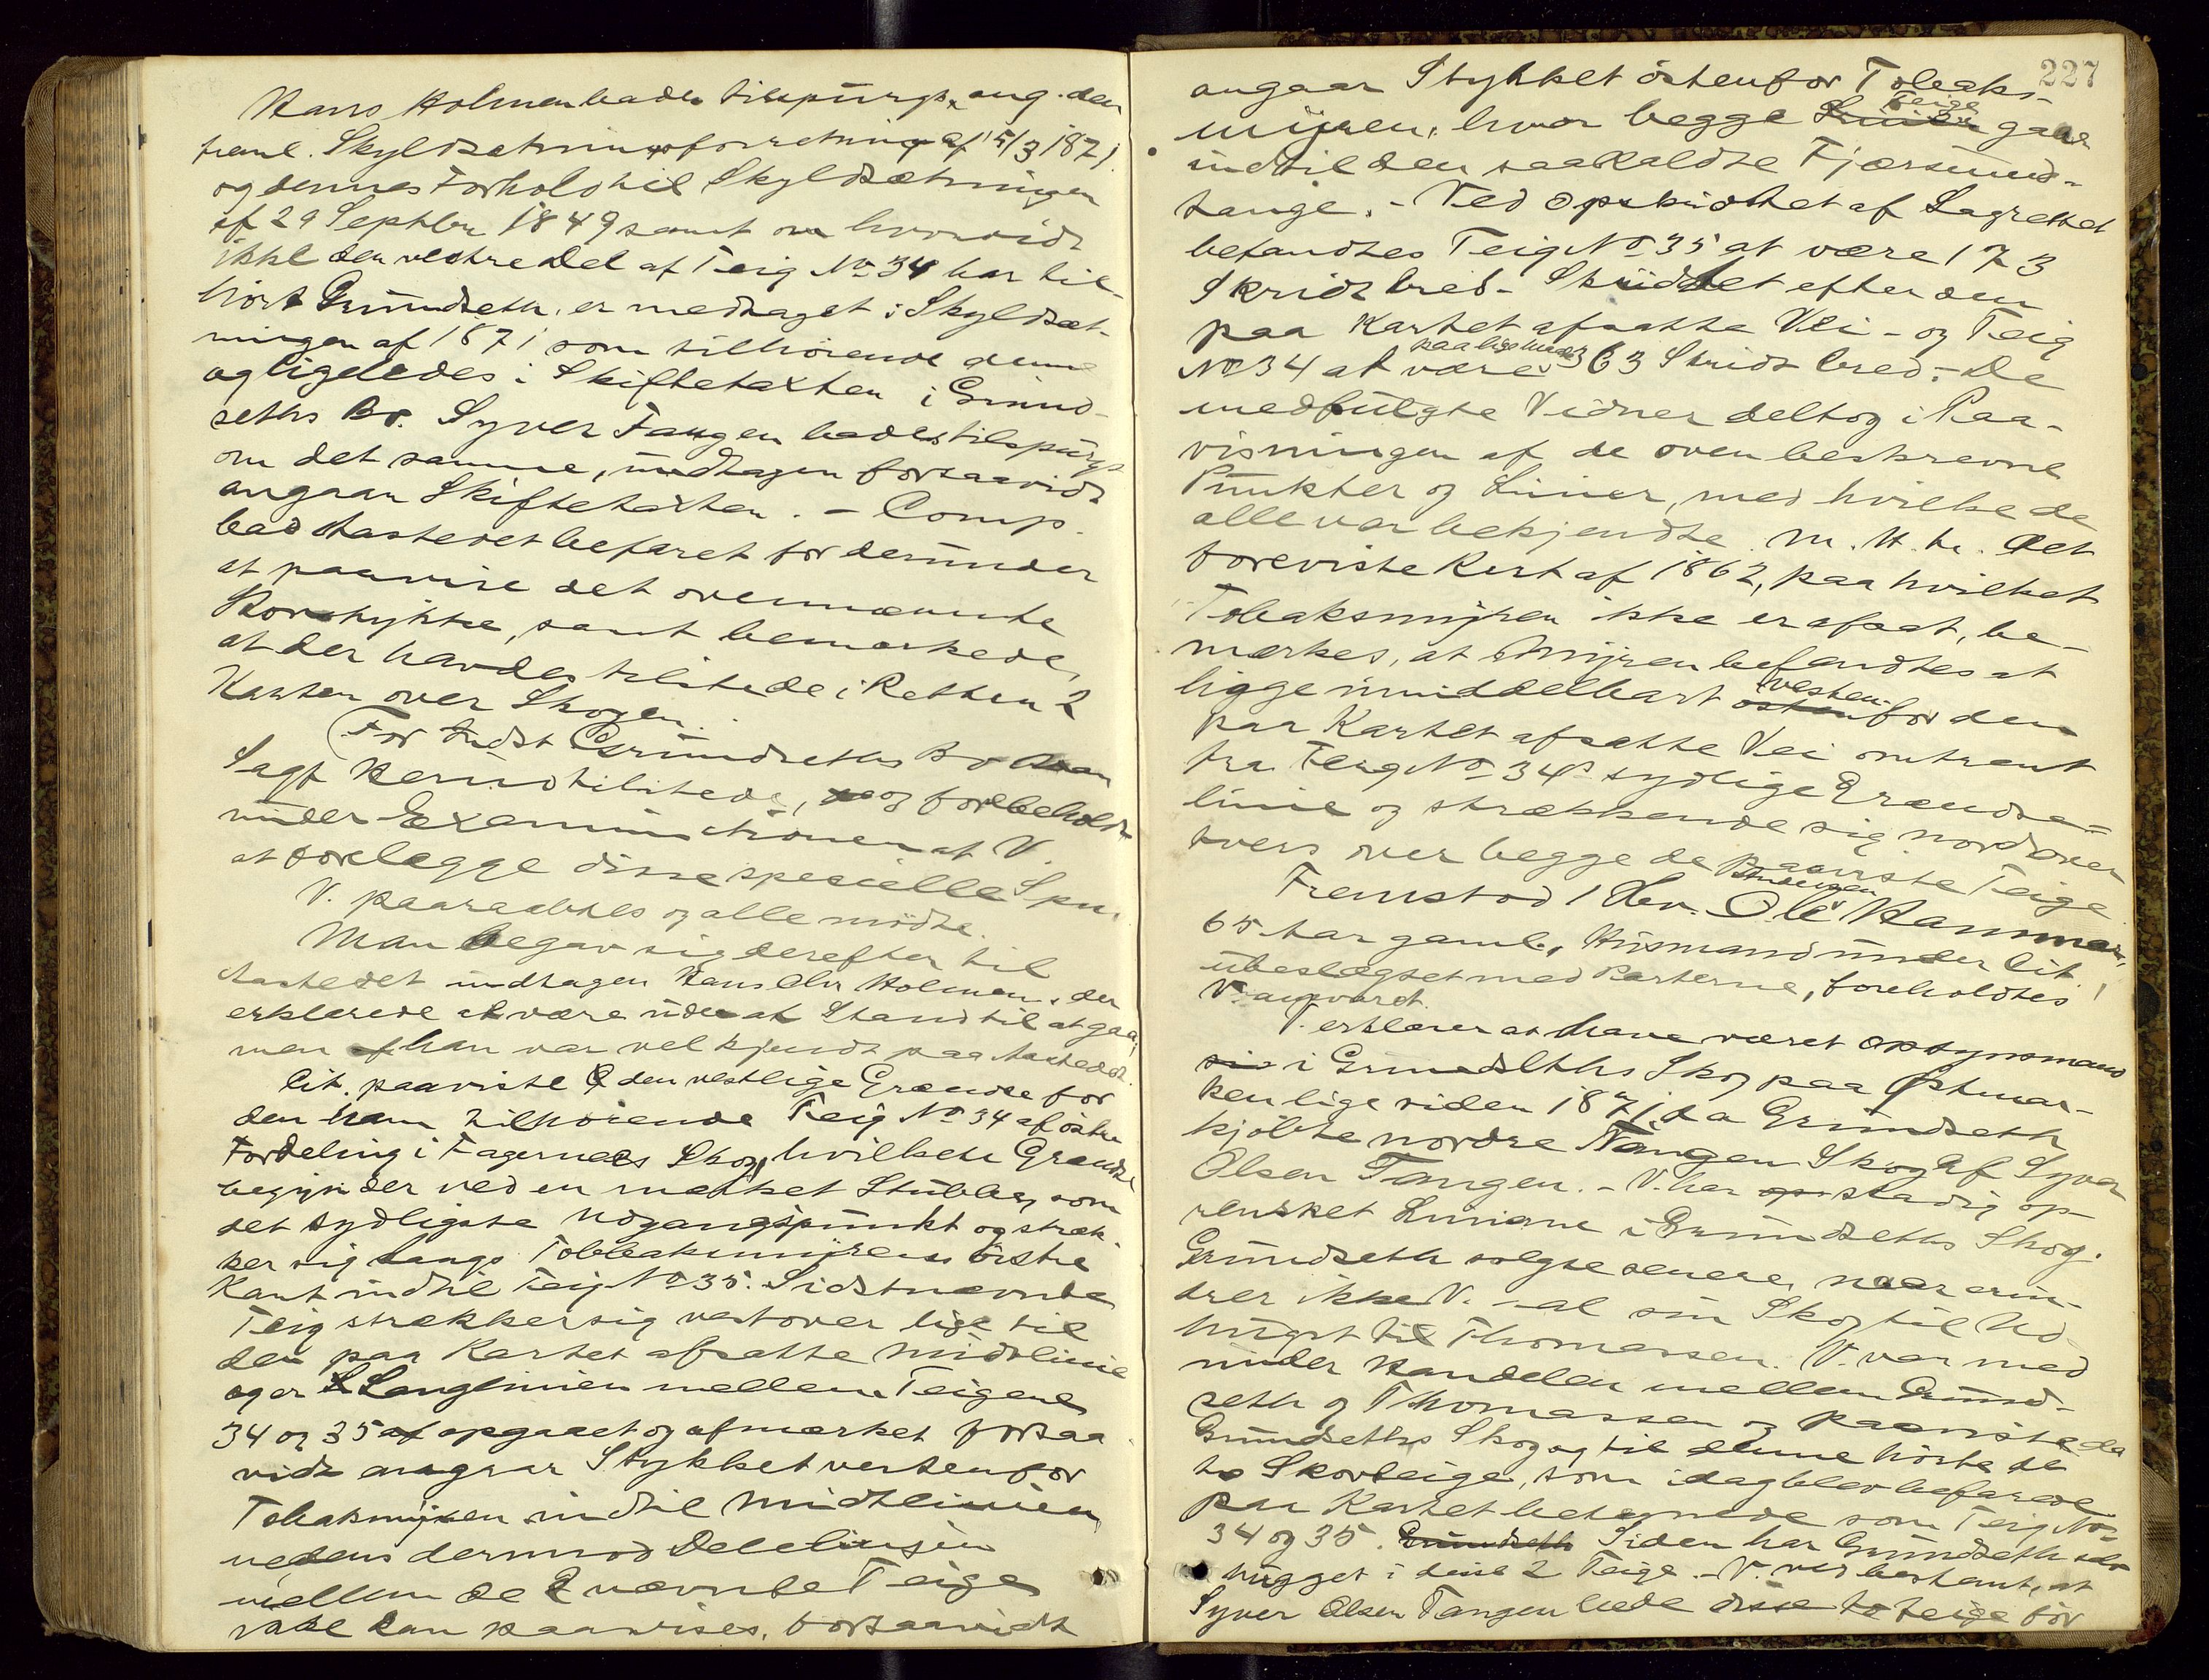 Hans Holmen bades tilspurgt, ang. den
freml. Skyldsætningsforretning af 15/3 1871
og dennes Forhold til Skyldsætningen
af 29 Septbr 1849 samt om hvorvidt
ikke den vestre Del af Teig No 34 har til-
hört Grundseth, er medtaget i Skyldsæt-
ningen af 1871 som tilhörende denne
og ligeledes i Skiftetaxten i Grund-
seths Bo. Syver Tangen bades tilspurgt
om det samme, undtagen forsaavidt
angaar Skiftetaxten. - Comp.
bad Aastedet befaret for derunder
at paavise det ovennævnte
Skovstykke, samt bemærkede,
at der havdes tilstede i Retten 2
Karter over Skogen.
For Indst Grundseths Bo
Sagf. tilstede, og forbeholdt
under Examinationen af V.
at forelægge disse specielle Spm.
V. paaraabtes og alle mödte.
Man begav sig derefter til
Aastedet undtagen Hans Olsn Holmen, der
erklærede at være ude af Stand til at gaa,
men han var vel kjendt paa Aastedet.
Cit. paaviste den vestlige Grændse for
den ham tilhörende Teig No 34 af östre
Fordeling i Fagernes Skog, hvilken Grændse
begynder ved en mærket Stubbe, som
det sydligste Udgangspunkt og stræk-
ker sig langs Tobbaksmyrens östre
Kant indtil Teig No 35. Sidstnævnte
Teig strækker sig vestover lige til
den paa Kartet afsatte Midtlinie
og er Langlinien mellem Teigene
34 og 35 opgaaet og afmærket forsaa
vidt angaar Stykket vestenfor
Tobaksmyren indtil Midtlinien,
medens derimod Delelinjen
mellem de 2 nævnte Teige
ikke kan paavises, forsaavidt
227
angaar Stykket östenfor Tobaks-
myren, hvor begge Teige gaar
indtil den saakaldte Fjærsund-
tange. - Ved Opskridtet af Lagrettet
befandtes Teig No 35 at være 173
Skridt bred. Skridtet efter den
paa Kartet afsatte Vei - og Teig
No 34 at være paa lige Maade 363 Skridt bred. - De
medfulgte Vidner deltog i Paa-
visningen af de ovenbeskrevne
Punkter og Linier, med hvilke de
alle var bekjendte. M. H. t. det
foreviste Kart af 1862, paa hvilket
Tobaksmyren ikke er afsat, be-
mærkes, at Myren befandtes at
ligge umiddelbart östen vestenfor den
paa Kartet afsatte Vei omtrent
fra Teig No 34s sydlige Grændse-
linie og strækkende sig nordover
tvers over begge de paaviste Teige
Fremstod 1 Vn. Ole Andersen Hammer,
65 Aar gaml., Husmand under Cit.
ubeslægtet med Parterne, foreholdtes
V.ansvaret.
V. erklærer at have været Opsynsmand
i Grundseths Skog paa Östmar-
ken lige siden 1871, da Grundseth
kjöbte nordre Tangen Skog af Syver
Olsen Tangen. - V. har stadig op-
rensket Linierne i Grundseths Skog.
Grundseth solgte senere, naar erin-
drer ikke V. - al sin Skog til Ud-
hugst til Thomassen. V. var med
under Handelen mellem Grund-
seth og Thomassen og paaviste da
Grundseths Skog og til denne hörte de
to Skovteige, som idag blev befarede
paa Kartet betegnede som Teig No
34 og 35. Grundseth Siden har Grundseth
hugget i disse 2 Teige. - V. ved bestemt, at
Syver Olsen Tangen eiede disse to Teige för